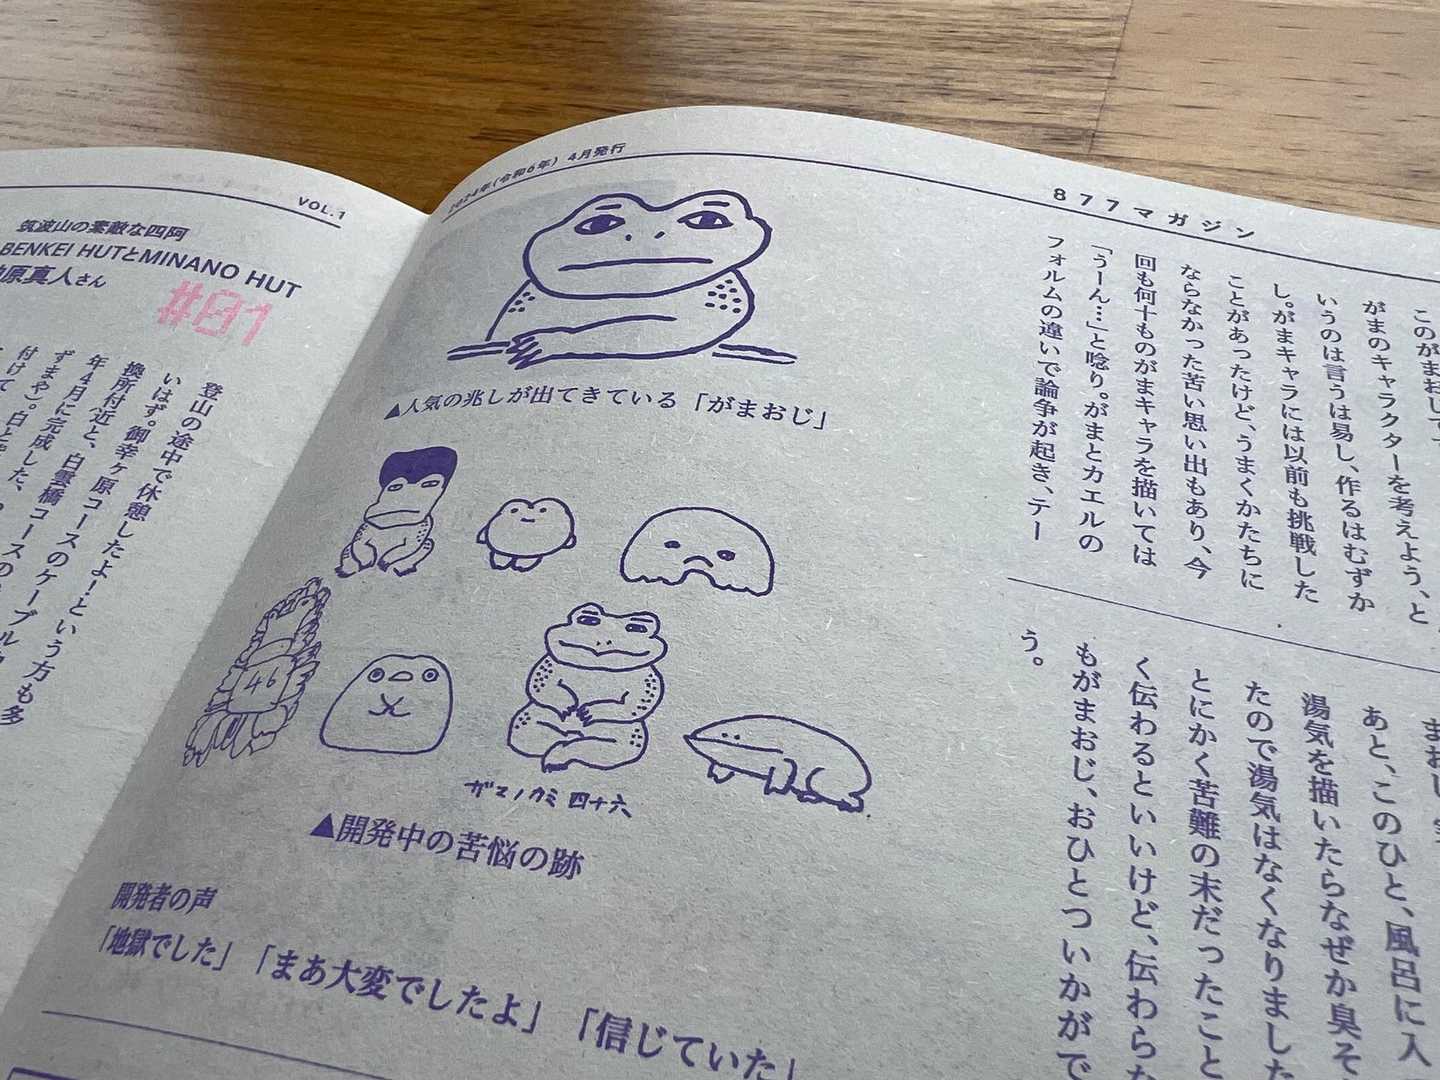 VOL.1
筑波山の素敵な四阿
BENKEI HUTとMINANO HUT
原真人さん
#01
登山の途中で休憩したよ!という方も多
いはず。御幸ヶ原コースのケーブル
換所付近と、白雲橋コースの
年4月に完成した、
ずまや)。白
付けて
2024年(令和6年) 4月発行
877マガジン
このがまおじで
がまのキャラクターを考えよう、と
いうのは言うは易し、作るはむずか
し。がまキャラには以前も挑戦した
ことがあったけど、うまくかたちに
ならなかった苦い思い出もあり、今
回も何十ものがまキャラを描いては
「うーん…」と唸り。がまとカエルの
フォルムの違いで論争が起き、テー
あと、このひと、風呂に入
湯気を描いたらなぜか臭そ
たので湯気はなくなりました
とにかく苦難の末だったこと
く伝わるといいけど、伝わらな
もがまおじ、おひとついかがで
う。
▲人気の兆しが出てきている「がまおじ」
46
ガマノカミ 四十六
▲開発中の苦悩の跡
開発者の声
「地獄でした」「まあ大変でしたよ」「信じていた」